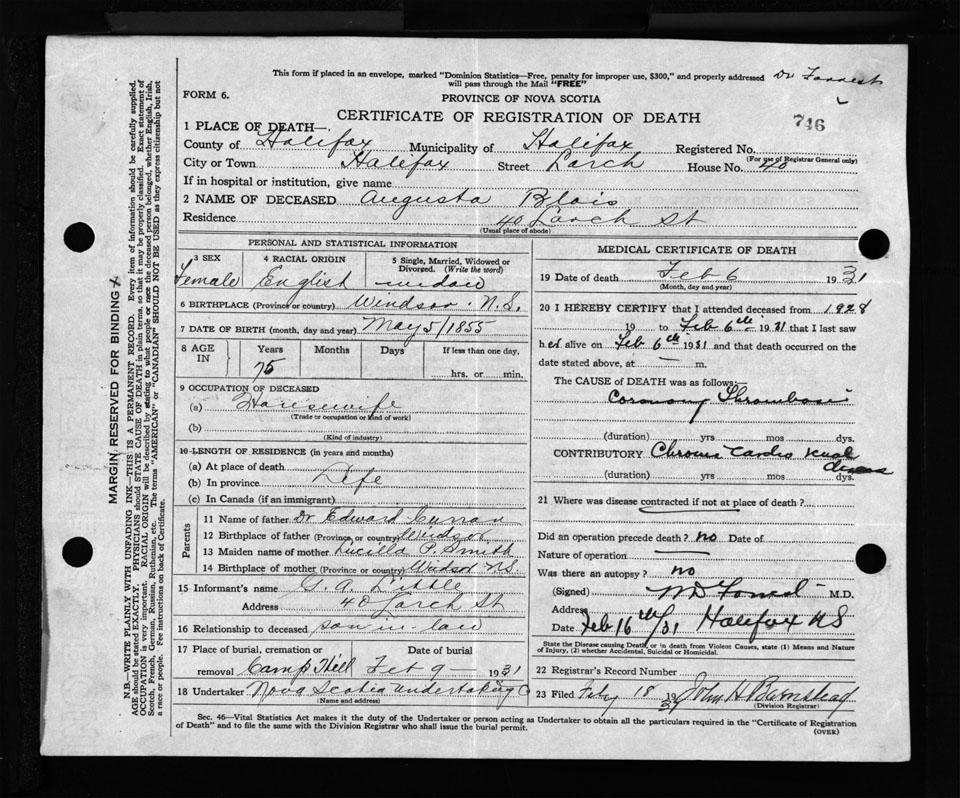 This form if placed in an envelope, marked "Dominion Statistics—Free, penalty for improper use, $300," and properly addressed Dr Forrest
will pass through the Mail "FREE"
FORM 6. PROVINCE OF NOVA SCOTIA
CERTIFICATE OF REGISTRATION OF DEATH
746
1 PLACE OF DEATH—
County of Halifax Municipality of Halifax Registered No.
(For use of Registrar General only)
City or Town Halifax Street Larch House No. 40
If in hospital or institution, give name
2 NAME OF DECEASED Augusta Blois
Residence 40 Larch St
(Usual place of abode)
PERSONAL AND STATISTICAL INFORMATION
3 SEX 4 RACIAL ORIGIN 5 Single, Married, Widowed or
Divorced. (Write the word)
Female English widow
6 BIRTHPLACE (Province or country) Windsor. N.S.
7 DATE OF BIRTH (month, day and year) May 5/1855
8 AGE IN Years Months Days If less than one day,
75 hrs. or min.
9 OCCUPATION OF DECEASED
(a) Housewife
(Trade or occupation or kind of work)
(b)
(Kind of industry)
10 LENGTH OF RESIDENCE (in years and months)
(a) At place of death
(b) In province Life
(c) In Canada (if an immigrant)
Parents
11 Name of father Dr Edward Curran
12 Birthplace of father (Province or country) Windsor
13 Maiden name of mother Lucilla P. Smith
14 Birthplace of mother (Province or country) Windsor NS.
15 Informant's name G. A. Little
Address 40 Larch St
16 Relationship to deceased son-in-law
17 Place of burial, cremation or Date of burial
removal Camp Hill Feb 9 — 1931
18 Undertaker Nova Scotia Undertaking Co
(Name and address)
MEDICAL CERTIFICATE OF DEATH
19 Date of death Feb 6 1931
(Month, day and year)
20 I HEREBY CERTIFY that I attended deceased from 1928
19 to Feb 6th 1931 that I last saw
her alive on Feb 6th 1931 and that death occurred on the
date stated above, at — m.
The CAUSE OF DEATH was as follows:
Coronary Thrombosis
(duration) yrs mos dys.
CONTRIBUTORY Chronic Cardio renal disease
(duration) yrs. mos. dys.
21 Where was disease contracted if not at place of death?
Did an operation precede death? no Date of
Nature of operation
Was there an autopsy? no
(Signed) WD Forrest M.D.
Address
Date Feb 16th/31 Halifax NS
State the Disease causing Death, or in death from Violent Causes, state (1) Means and Nature
of Injury, (2) whether Accidental, Suicidal or Homicidal.
22 Registrar's Record Number
23 Filed Feby 18 1931 John H Barnstead
(Division Registrar)
Sec. 46—Vital Statistics Act makes it the duty of the Undertaker or person acting as Undertaker to obtain all the particulars required in the "Certificate of Registration
of Death" and to file the same with the Division Registrar who shall issue the burial permit.
(OVER)
MARGIN RESERVED FOR BINDING
N.B.—WRITE PLAINLY WITH UNFADING INK—THIS IS A PERMANENT RECORD. Every item of information should be carefully supplied.
AGE should be stated EXACTLY. PHYSICIANS should STATE CAUSE OF DEATH in plain terms, so that it may be properly classified. Exact statement of
OCCUPATION is very important. RACIAL ORIGIN will be described by stating to what people or race the deceased person belonged, whether English, Irish,
Scotch, French, German, Russian, Ruthenian, etc. The terms "AMERICAN" or "CANADIAN" SHOULD NOT BE USED as they express citizenship but not
a race or people. See instructions on back of Certificate.